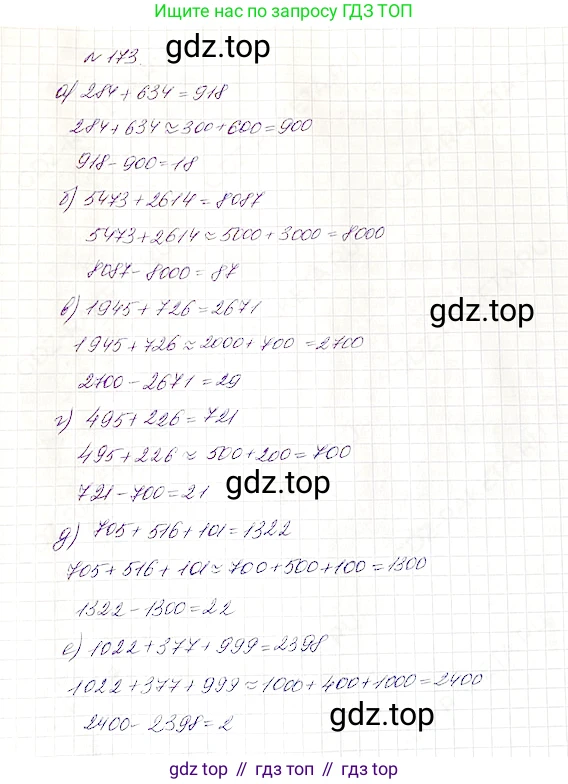 Ищите нас по запросу ГДЗ ТОП
№ 173.
gdz.top
а) 284 + 634 = 918
284 + 634 ≈ 300 + 600 = 900
918 - 900 = 18
б) 5473 + 2614 = 8087
5473 + 2614 ≈ 5000 + 3000 = 8000
8087 - 8000 = 87
в) 1945 + 726 = 2671
gdz.top
1945 + 726 ≈ 2000 + 700 = 2700
2700 - 2671 = 29
г) 495 + 226 = 721
495 + 226 ≈ 500 + 200 = 700
721 - 700 = 21
gdz.top
д) 705 + 516 + 101 = 1322
705 + 516 + 101 ≈ 700 + 500 + 100 = 1300
1322 - 1300 = 22
е) 1022 + 377 + 999 = 2398
1022 + 377 + 999 ≈ 1000 + 400 + 1000 = 2400
2400 - 2398 = 2
gdz.top
gdz top // гдз топ // gdz top